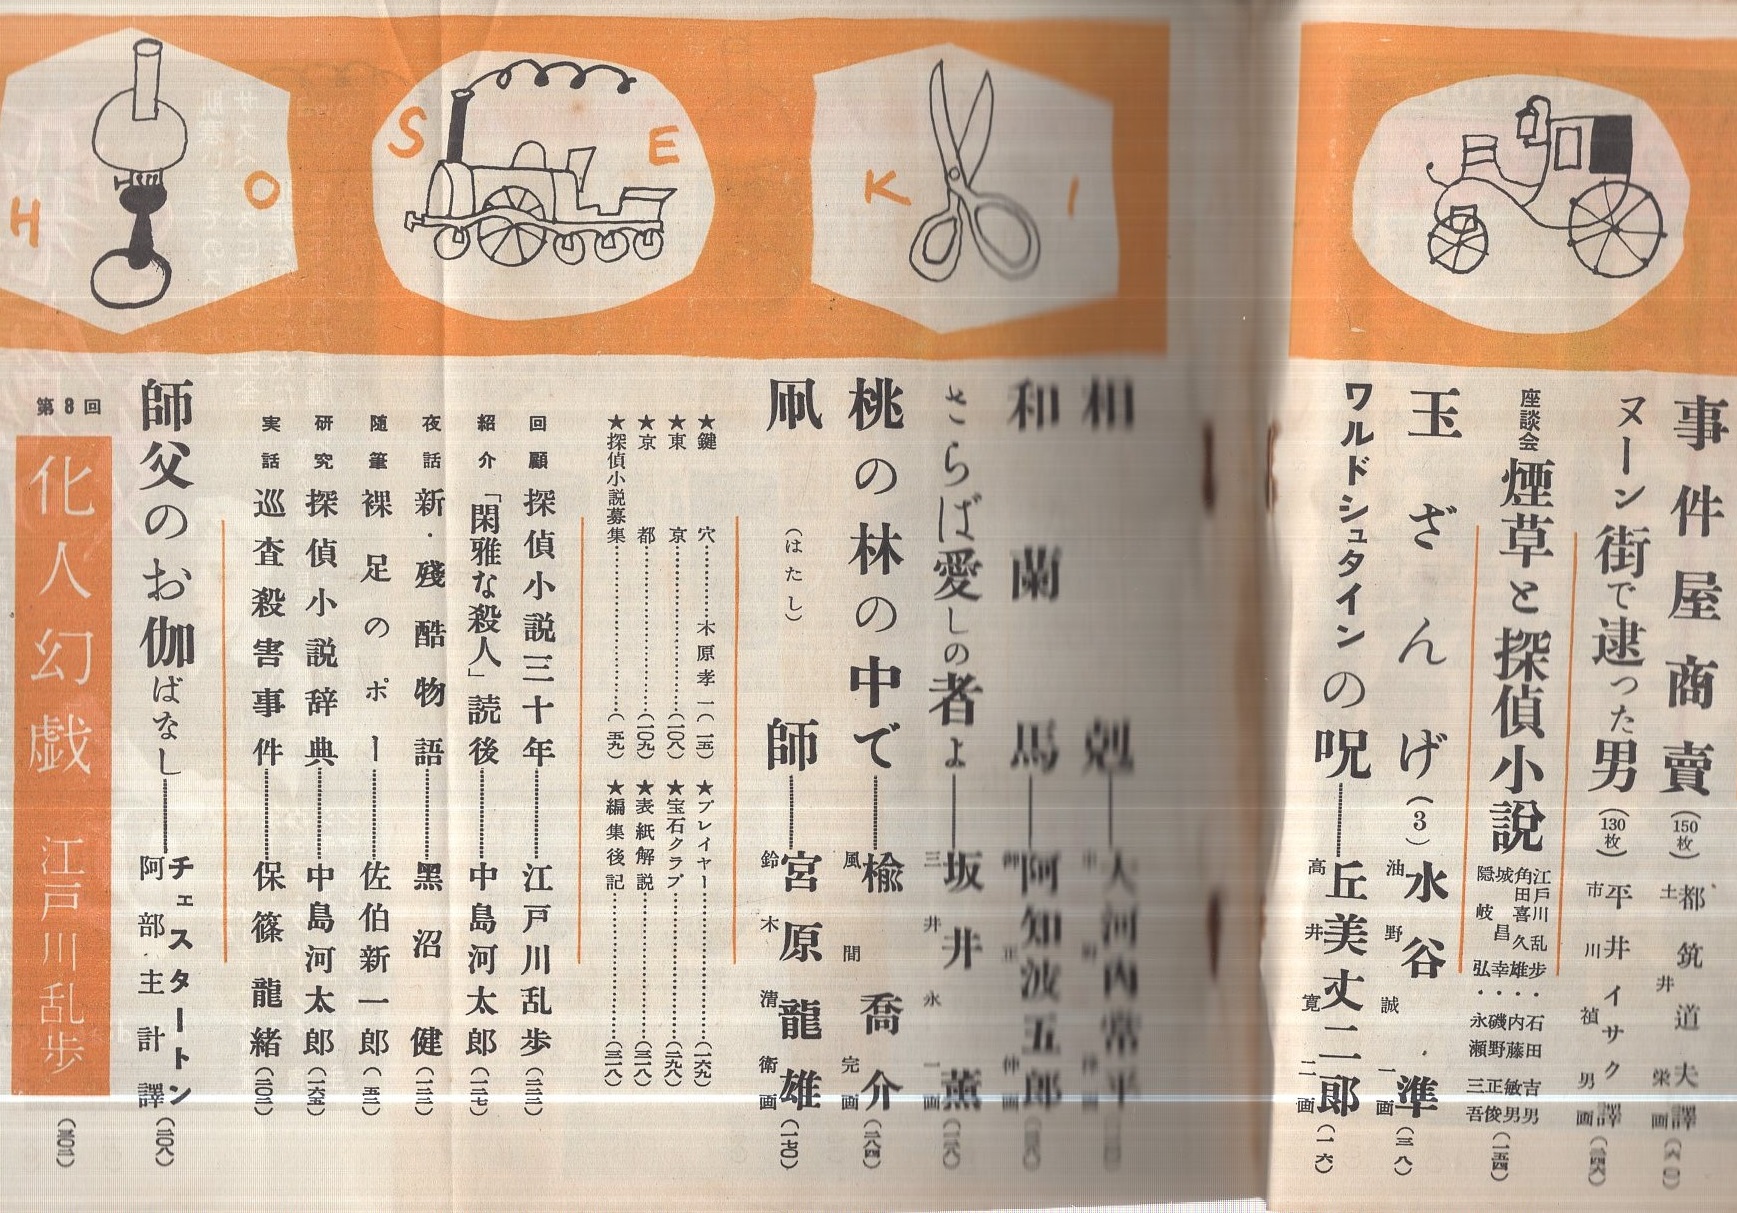 H O S E K I
事件屋商賣(150枚)都筑道夫譯
土井栄画
ヌーン街で逮った男(130枚)平井イサク譯
市川禎男画
座談会 煙草と探偵小説
江戸川乱歩・石田吉男
角田喜久雄・内藤敏男
城昌幸・磯野正俊
隠岐弘・永瀬三吾
(一五四)
玉ざんげ(3)水谷準(三一八)
油野誠一画
ワルドシュタインの呪 丘美丈二郎(一一六)
高井寛二画
相剋 大河内常平
和蘭馬 阿知波五郎
さらば愛しの者よ 坂井薫
三井永一画
桃の林の中で 楡喬介(二八四)
風間完画
凧師(はたし) 宮原龍雄(一七〇)
鈴木清衛画
★鍵穴 木原孝一(一五)
★東京(一〇八)
★京都(一〇九)
★探偵小説募集(五九)
★プレイヤー(一六九)
★宝石クラブ(二九八)
★表紙解説(三一八)
★編集後記(三一八)
回顧 探偵小説三十年 江戸川乱歩
紹介「閑雅な殺人」読後 中島河太郎(一二七)
夜話 新・殘酷物語 黑沼健(一二二)
随筆 裸足のポー 佐伯新一郎(五二)
研究 探偵小説辞典 中島河太郎(一六五)
実話 巡査殺害事件 保篠龍緒(二〇二)
師父のお伽ばなし チェスタートン
阿部主計譯(二〇八)
第8回
化人幻戯 江戸川乱歩(三〇二)